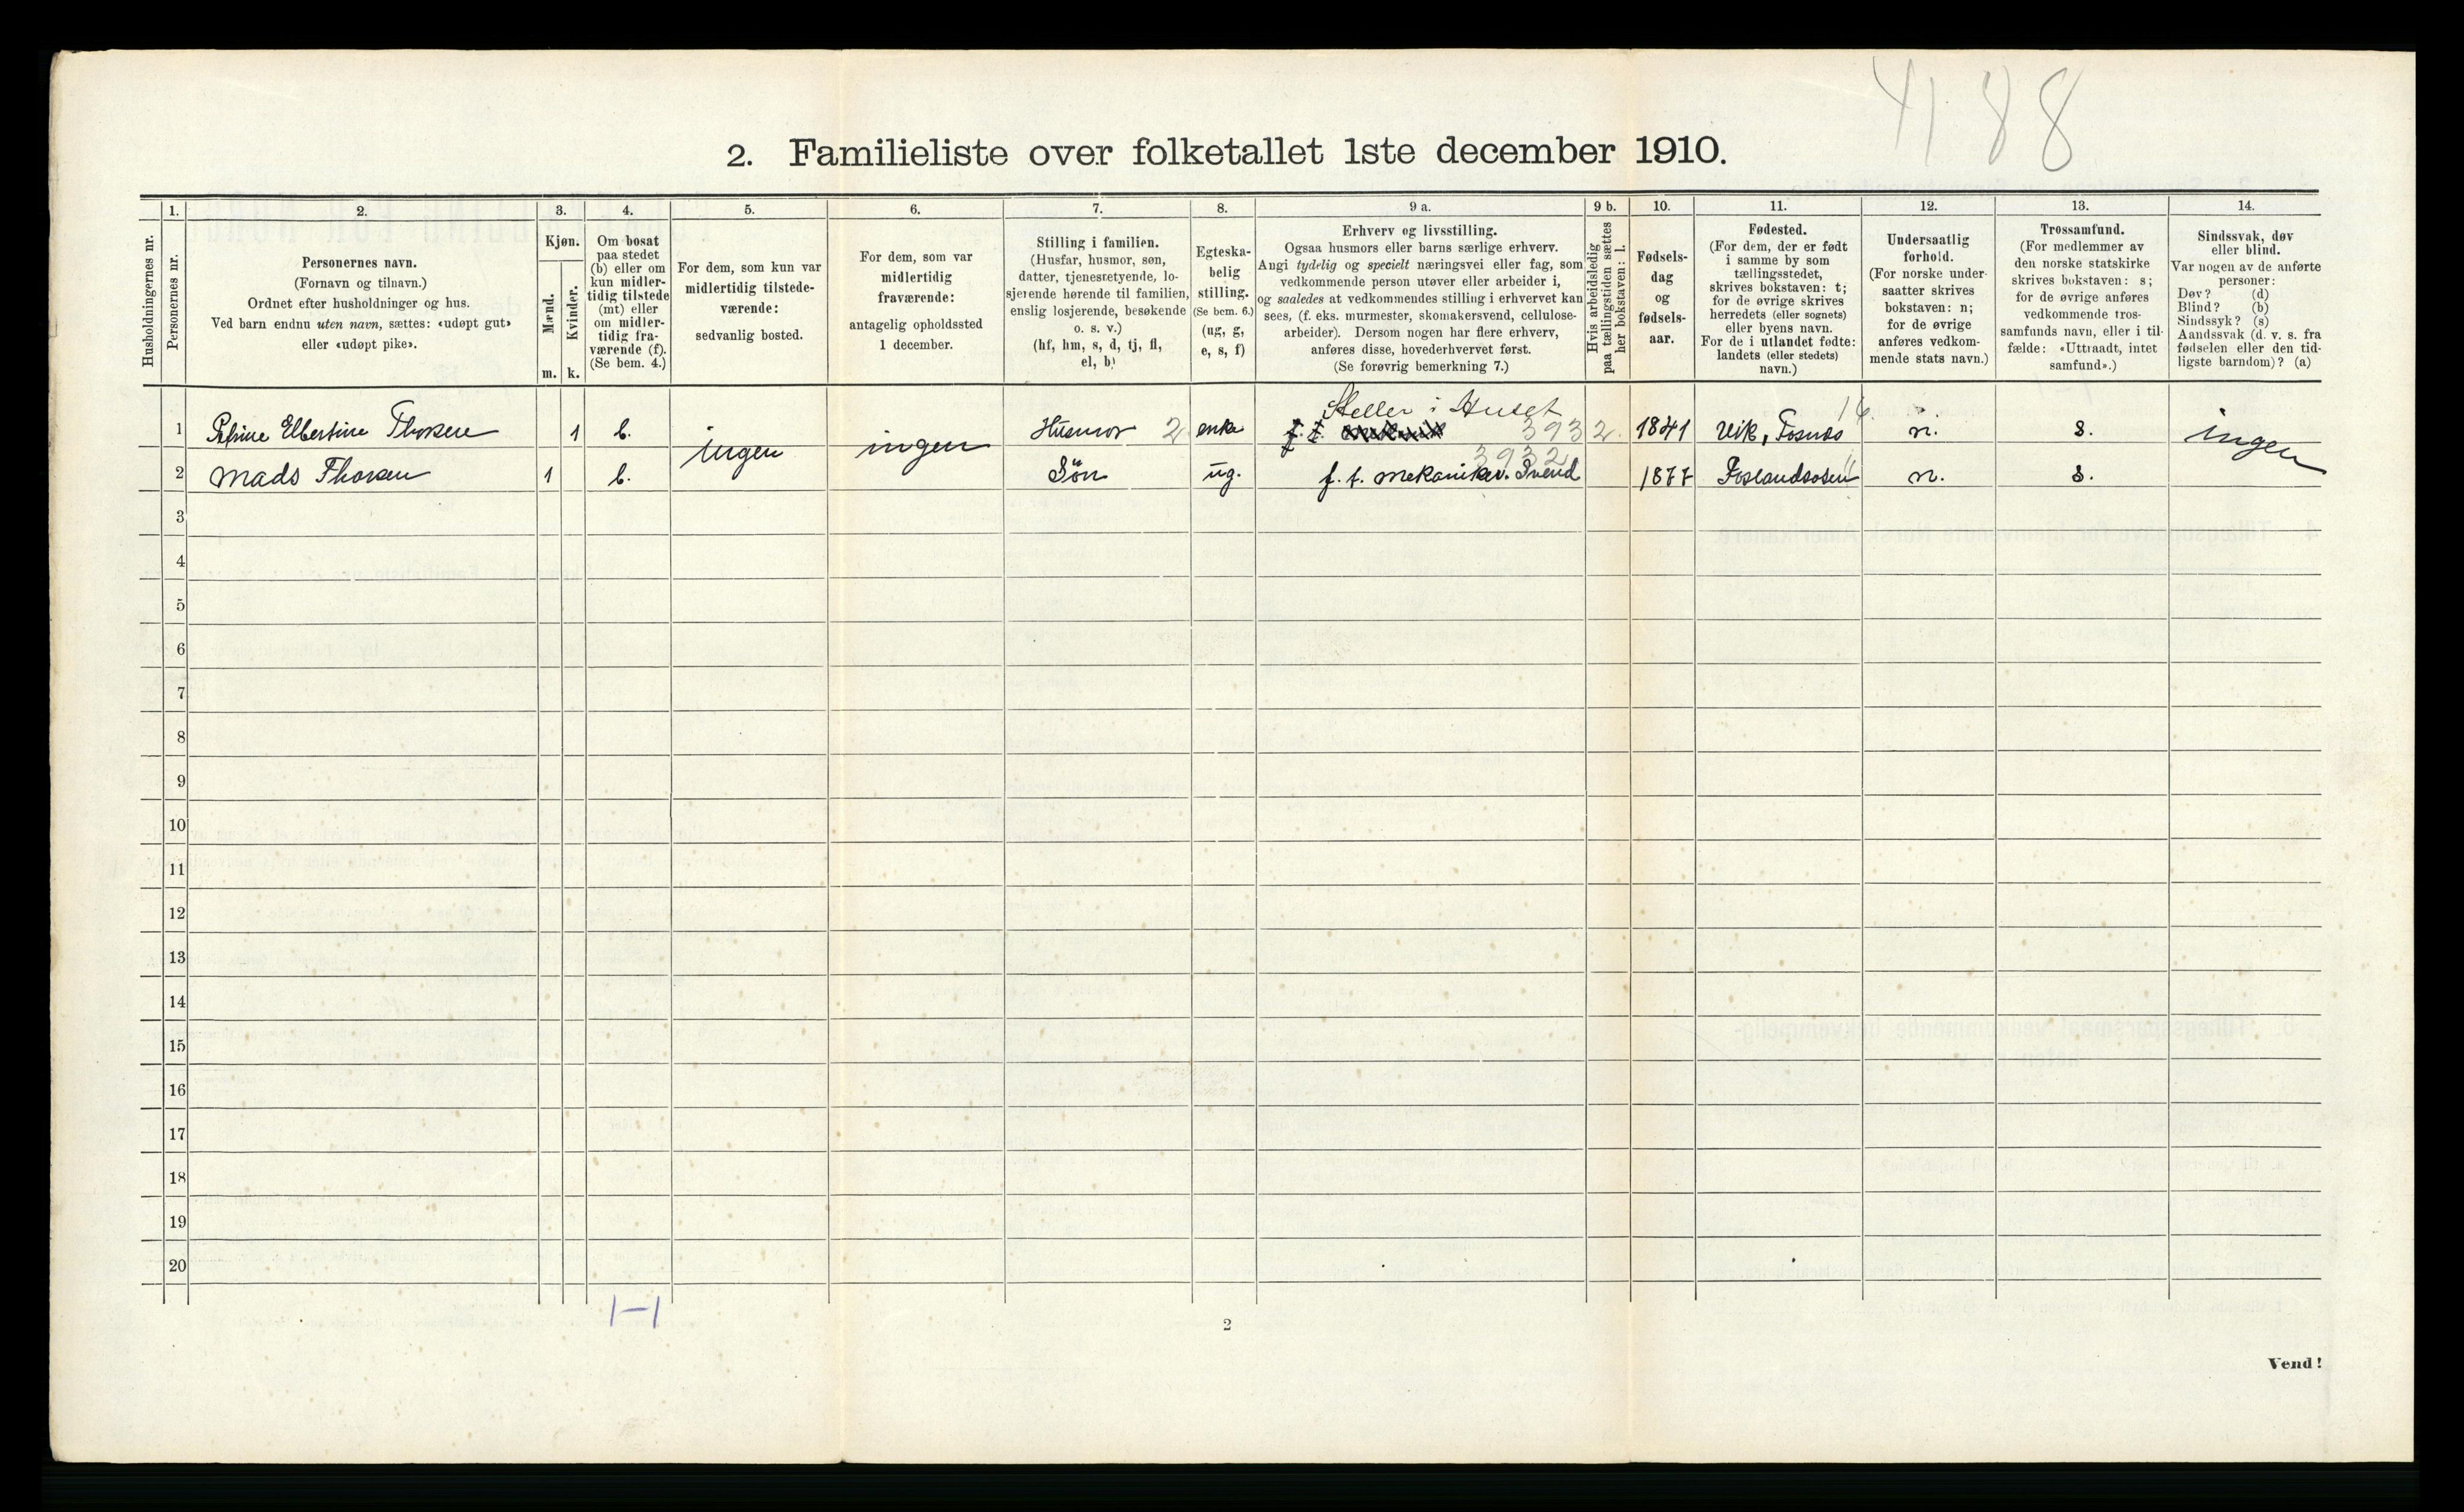 4188
2. Familieliste over folketallet 1ste december 1910.
Husholdningernes nr.
1. Personernes nr.
2. Personernes navn.
(Fornavn og tilnavn.)
Ordnet efter husholdninger og hus.
Ved barn endnu uten navn, sættes: «udøpt gut»
eller «udøpt pike».
3. Kjøn.
Mænd. m.
Kvinder. k.
4. Om bosat
paa stedet
(b) eller om
kun midler-
tidig tilstede
(mt) eller
om midler-
tidig fra-
værende (f).
(Se bem. 4.)
5. For dem, som kun var
midlertidig tilstede-
værende:
sedvanlig bosted.
6. For dem, som var
midlertidig
fraværende:
antagelig opholdssted
1 december.
7. Stilling i familien.
(Husfar, husmor, søn,
datter, tjenestetyende, lo-
sjerende hørende til familien,
enslig losjerende, besøkende
o. s. v.)
(hf, hm, s, d, tj, fl,
el, b)
8. Egteska-
belig
stilling.
(Se bem. 6.)
(ug, g,
e, s, f)
9 a. Erhverv og livsstilling.
Ogsaa husmors eller barns særlige erhverv.
Angi tydelig og specielt næringsvei eller fag, som
vedkommende person utøver eller arbeider i,
og saaledes at vedkommendes stilling i erhvervet kan
sees, (f. eks. murmester, skomakersvend, cellulose-
arbeider). Dersom nogen har flere erhverv,
anføres disse, hovederhvervet først.
(Se forøvrig bemerkning 7.)
9 b. Hvis arbeidsledig
paa tællingstiden sættes
her bokstaven: l.
10. Fødsels-
dag
og
fødsels-
aar.
11. Fødested.
(For dem, der er født
i samme by som
tællingsstedet,
skrives bokstaven: t;
for de øvrige skrives
herredets (eller sognets)
eller byens navn.
For de i utlandet fødte:
landets (eller stedets)
navn.)
12. Undersaatlig
forhold.
(For norske under-
saatter skrives
bokstaven: n;
for de øvrige
anføres vedkom-
mende stats navn.)
13. Trossamfund.
(For medlemmer av
den norske statskirke
skrives bokstaven: s;
for de øvrige anføres
vedkommende tros-
samfunds navn, eller i til-
fælde: «Uttraadt, intet
samfund».)
14. Sindssvak, døv
eller blind.
Var nogen av de anførte
personer:
Døv? (d)
Blind? (b)
Sindssyk? (s)
Aandssvak (d. v. s. fra
fødselen eller den tid-
ligste barndom)? (a)
1 Elbertine Thorsen 1 b. ingen ingen Husmor 2 enke Steller i Huset 393 2. 1841 Vik, Fosnæs 16. n. s. ingen
2 Mads Thorsen 1 b. Søn ug. f. t. mekaniker. Svend 3932 1877 Foslandsosen 11 n. s.
3
4
5
6
7
8
9
10
11
12
13
14
15
16
17
18
19
20
1-1
2
Vend!